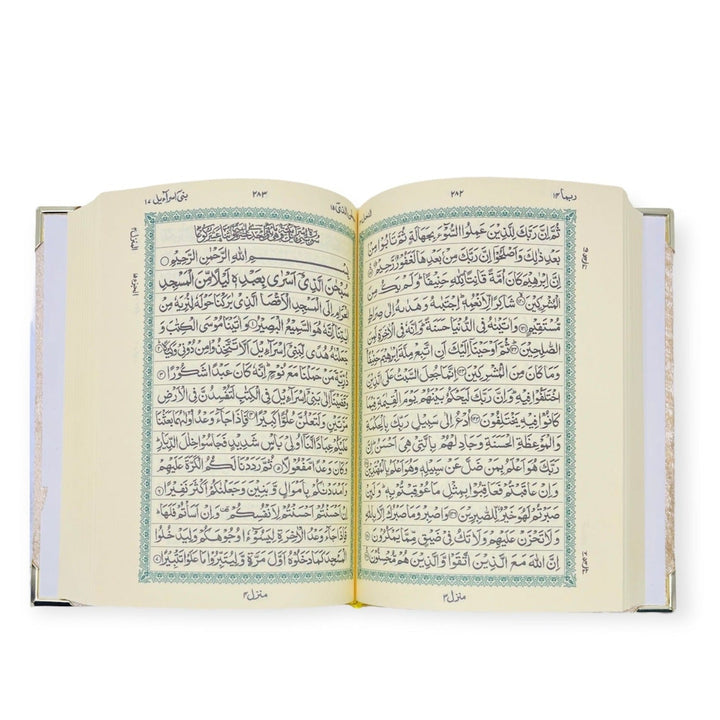 ربما ١٤
٢٨٢
النحل ١٦
ثُمَّ اِنَّ رَبَّكَ لِلَّذِيْنَ عَمِلُوا السُّوْٓءَ بِجَهَالَةٍ ثُمَّ تَابُوْا مِنْۢ
بَعْدِ ذٰلِكَ وَاَصْلَحُوْٓا اِنَّ رَبَّكَ مِنْۢ بَعْدِهَا لَغَفُوْرٌ رَّحِيْمٌ
اِنَّ اِبْرٰهِيْمَ كَانَ اُمَّةً قَانِتًا لِّلّٰهِ حَنِيْفًا وَلَمْ يَكُ مِنَ
الْمُشْرِكِيْنَ شَاكِرًا لِّاَنْعُمِهٖ اِجْتَبٰىهُ وَهَدٰىهُ اِلٰى صِرَاطٍ
مُّسْتَقِيْمٍ وَاٰتَيْنٰهُ فِي الدُّنْيَا حَسَنَةً وَاِنَّهٗ فِي الْاٰخِرَةِ لَمِنَ
الصّٰلِحِيْنَ ثُمَّ اَوْحَيْنَآ اِلَيْكَ اَنِ اتَّبِعْ مِلَّةَ اِبْرٰهِيْمَ حَنِيْفًا
وَمَا كَانَ مِنَ الْمُشْرِكِيْنَ اِنَّمَا جُعِلَ السَّبْتُ عَلَى الَّذِيْنَ
اخْتَلَفُوْا فِيْهِ وَاِنَّ رَبَّكَ لَيَحْكُمُ بَيْنَهُمْ يَوْمَ الْقِيٰمَةِ فِيْمَا
كَانُوْا فِيْهِ يَخْتَلِفُوْنَ اُدْعُ اِلٰى سَبِيْلِ رَبِّكَ بِالْحِكْمَةِ
وَالْمَوْعِظَةِ الْحَسَنَةِ وَجَادِلْهُمْ بِالَّتِيْ هِيَ اَحْسَنُ اِنَّ
رَبَّكَ هُوَ اَعْلَمُ بِمَنْ ضَلَّ عَنْ سَبِيْلِهٖ وَهُوَ اَعْلَمُ بِالْمُهْتَدِيْنَ
وَاِنْ عَاقَبْتُمْ فَعَاقِبُوْا بِمِثْلِ مَا عُوْقِبْتُمْ بِهٖ وَلَئِنْ
صَبَرْتُمْ لَهُوَ خَيْرٌ لِّلصّٰبِرِيْنَ وَاصْبِرْ وَمَا صَبْرُكَ اِلَّا بِاللّٰهِ
وَلَا تَحْزَنْ عَلَيْهِمْ وَلَا تَكُ فِيْ ضَيْقٍ مِّمَّا يَمْكُرُوْنَ
اِنَّ اللّٰهَ مَعَ الَّذِيْنَ اتَّقَوْا وَّالَّذِيْنَ هُمْ مُّحْسِنُوْنَ
منزل ٣
٢٨٣
بنی اسرآءیل ١٧
بِسْمِ اللّٰهِ الرَّحْمٰنِ الرَّحِيْمِ
سُبْحٰنَ الَّذِيْٓ اَسْرٰى بِعَبْدِهٖ لَيْلًا مِّنَ الْمَسْجِدِ
الْحَرَامِ اِلَى الْمَسْجِدِ الْاَقْصَا الَّذِيْ بٰرَكْنَا حَوْلَهٗ لِنُرِيَهٗ مِنْ
اٰيٰتِنَا اِنَّهٗ هُوَ السَّمِيْعُ الْبَصِيْرُ وَاٰتَيْنَا مُوْسَى الْكِتٰبَ وَ
جَعَلْنٰهُ هُدًى لِّبَنِيْٓ اِسْرَآءِيْلَ اَلَّا تَتَّخِذُوْا مِنْ دُوْنِيْ وَكِيْلًا
ذُرِّيَّةَ مَنْ حَمَلْنَا مَعَ نُوْحٍ اِنَّهٗ كَانَ عَبْدًا شَكُوْرًا وَ
قَضَيْنَآ اِلٰى بَنِيْٓ اِسْرَآءِيْلَ فِي الْكِتٰبِ لَتُفْسِدُنَّ فِي الْاَرْضِ
مَرَّتَيْنِ وَلَتَعْلُنَّ عُلُوًّا كَبِيْرًا فَاِذَا جَآءَ وَعْدُ اُوْلٰىهُمَا بَعَثْنَا
عَلَيْكُمْ عِبَادًا لَّنَآ اُولِيْ بَاْسٍ شَدِيْدٍ فَجَاسُوْا خِلٰلَ الدِّيَارِ
وَكَانَ وَعْدًا مَّفْعُوْلًا ثُمَّ رَدَدْنَا لَكُمُ الْكَرَّةَ عَلَيْهِمْ
وَاَمْدَدْنٰكُمْ بِاَمْوَالٍ وَّبَنِيْنَ وَجَعَلْنٰكُمْ اَكْثَرَ نَفِيْرًا
اِنْ اَحْسَنْتُمْ اَحْسَنْتُمْ لِاَنْفُسِكُمْ وَاِنْ اَسَاْتُمْ فَلَهَا
فَاِذَا جَآءَ وَعْدُ الْاٰخِرَةِ لِيَسُوْٓءٗا وُجُوْهَكُمْ وَلِيَدْخُلُوا
الْمَسْجِدَ كَمَا دَخَلُوْهُ اَوَّلَ مَرَّةٍ وَّلِيُتَبِّرُوْا مَا عَلَوْا تَتْبِيْرًا
منزل ٤